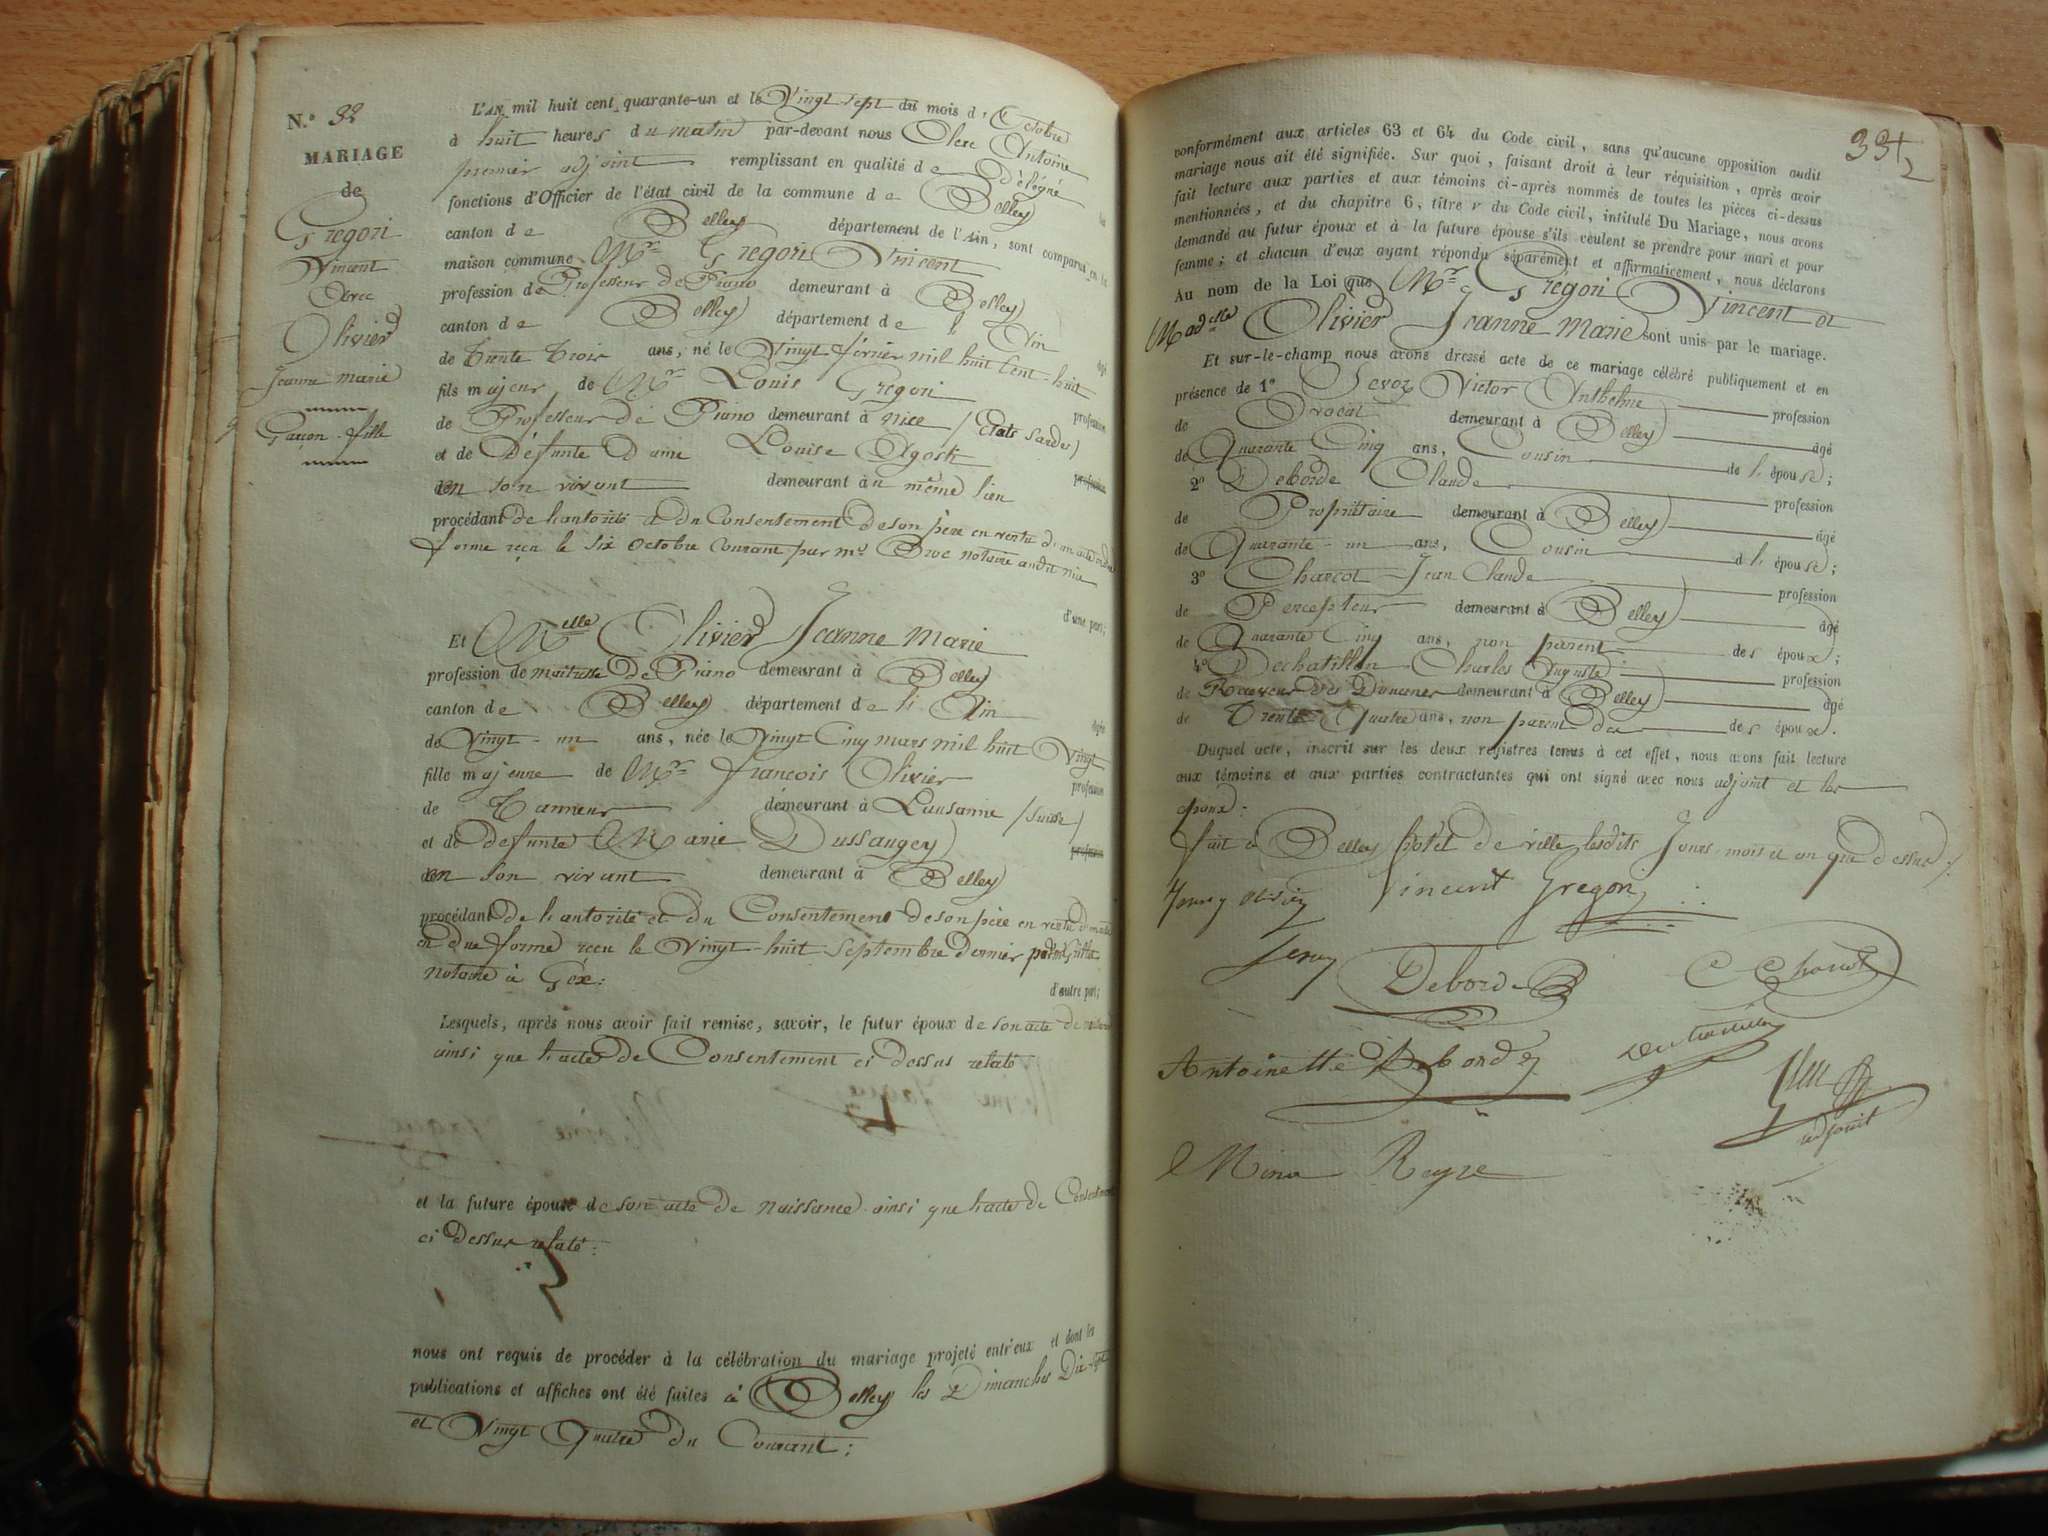 N.° 32
MARIAGE
de
Gregori
Vincent
Avec
Olivier
Jeanne marie
Garçon - fille
L'AN mil huit cent quarante-un et le Vingt sept du mois d'Octobre
à huit heures du matin par-devant nous Clerc Antoine
premier adjoint remplissant en qualité de Délégué les
fonctions d'Officier de l'état civil de la commune de Belley
canton de Belley département de l'Ain, sont comparus en la
maison commune Mr Gregori Vincent
profession de Professeur de Piano demeurant à Belley
canton de Belley département de l'Ain âgé
de Trente Trois ans, né le Vingt février mil huit Cent-huit
fils majeur de Mr Louis Gregori profession
de Professeur de Piano demeurant à nice (États Sardes)
et de Défunte Dame Louise Agosti profession
en son vivant demeurant au même lieu
procédant de l'autorité et du Consentement de son père en vertu d'un acte en due
forme reçu le six Octobre Courant par me notaire audit nice
d'une part;
Et Melle Olivier Jeanne Marie
profession de maitresse de Piano demeurant à Belley
canton de Belley département de l'Ain âgée
de Vingt-un ans, née le Vingt Cinq mars mil huit Vingt
fille majeure de Mr François Olivier profession
de Tanneur demeurant à Lausanne (Suisse)
et de defunte Marie Dussaugey profession
en son vivant demeurant à Belley
procédant de l'autorité et du Consentement de son père en vertu d'un acte
en due forme reçu le Vingt-huit Septembre dernier par
notaire à Gex:
d'autre part;
Lesquels, après nous avoir fait remise, savoir, le futur époux de son acte de naissance
ainsi que l'acte de Consentement ci dessus relaté
et la future épouse de son acte de naissance ainsi que l'acte de Consentement
ci dessus relaté:
nous ont requis de procéder à la célébration du mariage projeté entr'eux et dont les
publications et affiches ont été faites à Belley les Dimanches Dix-sept
et Vingt Quatre du Courant;
conformément aux articles 63 et 64 du Code civil, sans qu'aucune opposition audit
mariage nous ait été signifiée. Sur quoi, faisant droit à leur réquisition, après avoir
fait lecture aux parties et aux témoins ci-après nommés de toutes les pièces ci-dessus
mentionnées, et du chapitre 6, titre v du Code civil, intitulé Du Mariage, nous avons
demandé au futur époux et à la future épouse s'ils veulent se prendre pour mari et pour
femme; et chacun d'eux ayant répondu séparément et affirmativement, nous déclarons
Au nom de la Loi que Mr Gregori Vincent et
Madelle Olivier Jeanne marie sont unis par le mariage.
Et sur-le-champ nous avons dressé acte de ce mariage célébré publiquement et en
présence de 1° Victor Anthelme profession
de Avocat demeurant à Belley âgé
de Quarante Cinq ans, Cousin de l'épouse;
2° Deborde Claude profession
de Propriétaire demeurant à Belley âgé
de Quarante-un ans, Cousin d l'épouse;
3° Charcot Jean Claude profession
de Percepteur demeurant à Belley âgé
de Quarante Cinq ans, non parent des époux;
4° Dechatillon Charles Auguste profession
de Receveur des Douanes demeurant à Belley âgé
de Trente Quatre ans, non parent des époux.
Duquel acte, inscrit sur les deux registres tenus à cet effet, nous avons fait lecture
aux témoins et aux parties contractantes qui ont signé avec nous adjoint et les
époux:
fait à Belley hôtel de ville lesdits Jours, mois et an que dessus.
Jenny Olivier Vincent Gregori
Deborde Charcot
Antoinette Deborde
adjoint
Nina Reyre